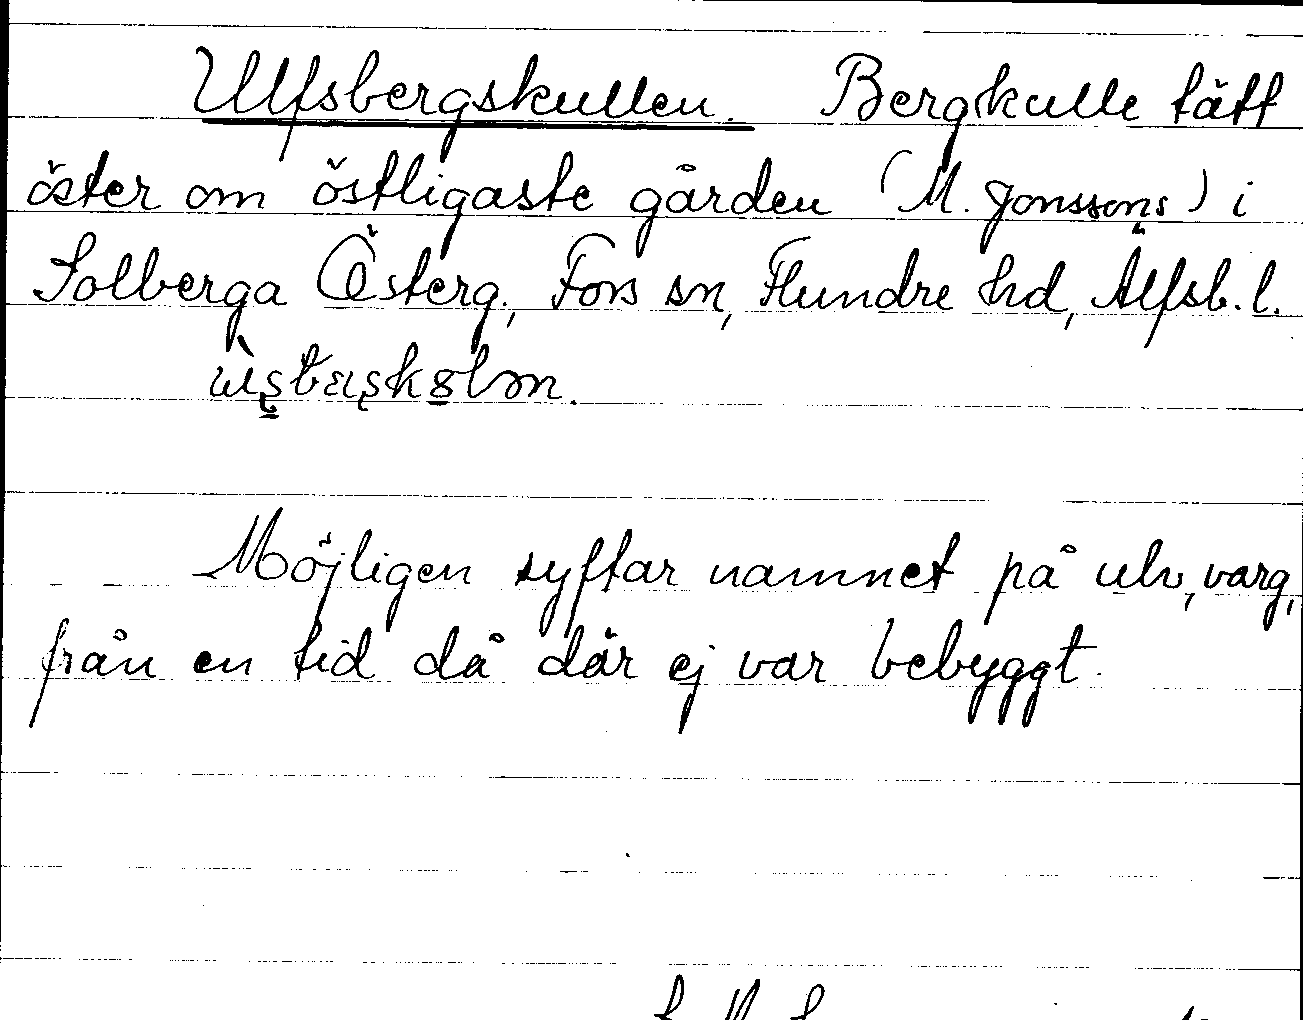 Ulfsbergskullen. Bergkulle tätt
öster om östligaste gården (M. Jonssons) i
Solberga Österg., Fors sn, Flundre hd, Älfsb. l.
Möjligen syftar namnet på ulv, varg,
från en tid då där ej var bebyggt.